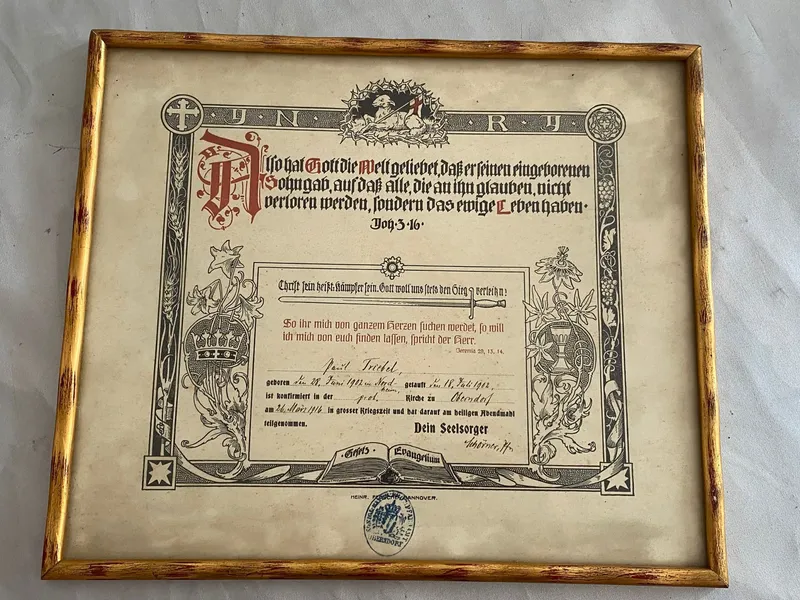 J. N. R. J.
Also hat Gott die Welt geliebet, daß er seinen eingeborenen
Sohn gab, auf daß alle, die an ihn glauben, nicht
verloren werden, sondern das ewige Leben haben.
Joh. 3. 16.
Christ sein heißt: Kämpfer sein. Gott woll uns stets den Sieg verleihn!
So ihr mich von ganzem Herzen suchen werdet, so will
ich mich von euch finden lassen, spricht der Herr.
Jeremia 29, 13. 14.
Paul Triebel,
geboren den 28. Juni 1902 in Nord- getauft den 18. Juli 1902,
heim,
ist konfirmiert in der prot. Kirche zu Oberndorf
am 26. März 1916 in grosser Kriegszeit und hat darauf am heiligen Abendmahl
teilgenommen.
Dein Seelsorger
Gesetz Evangelium
HEINR. HANNOVER.